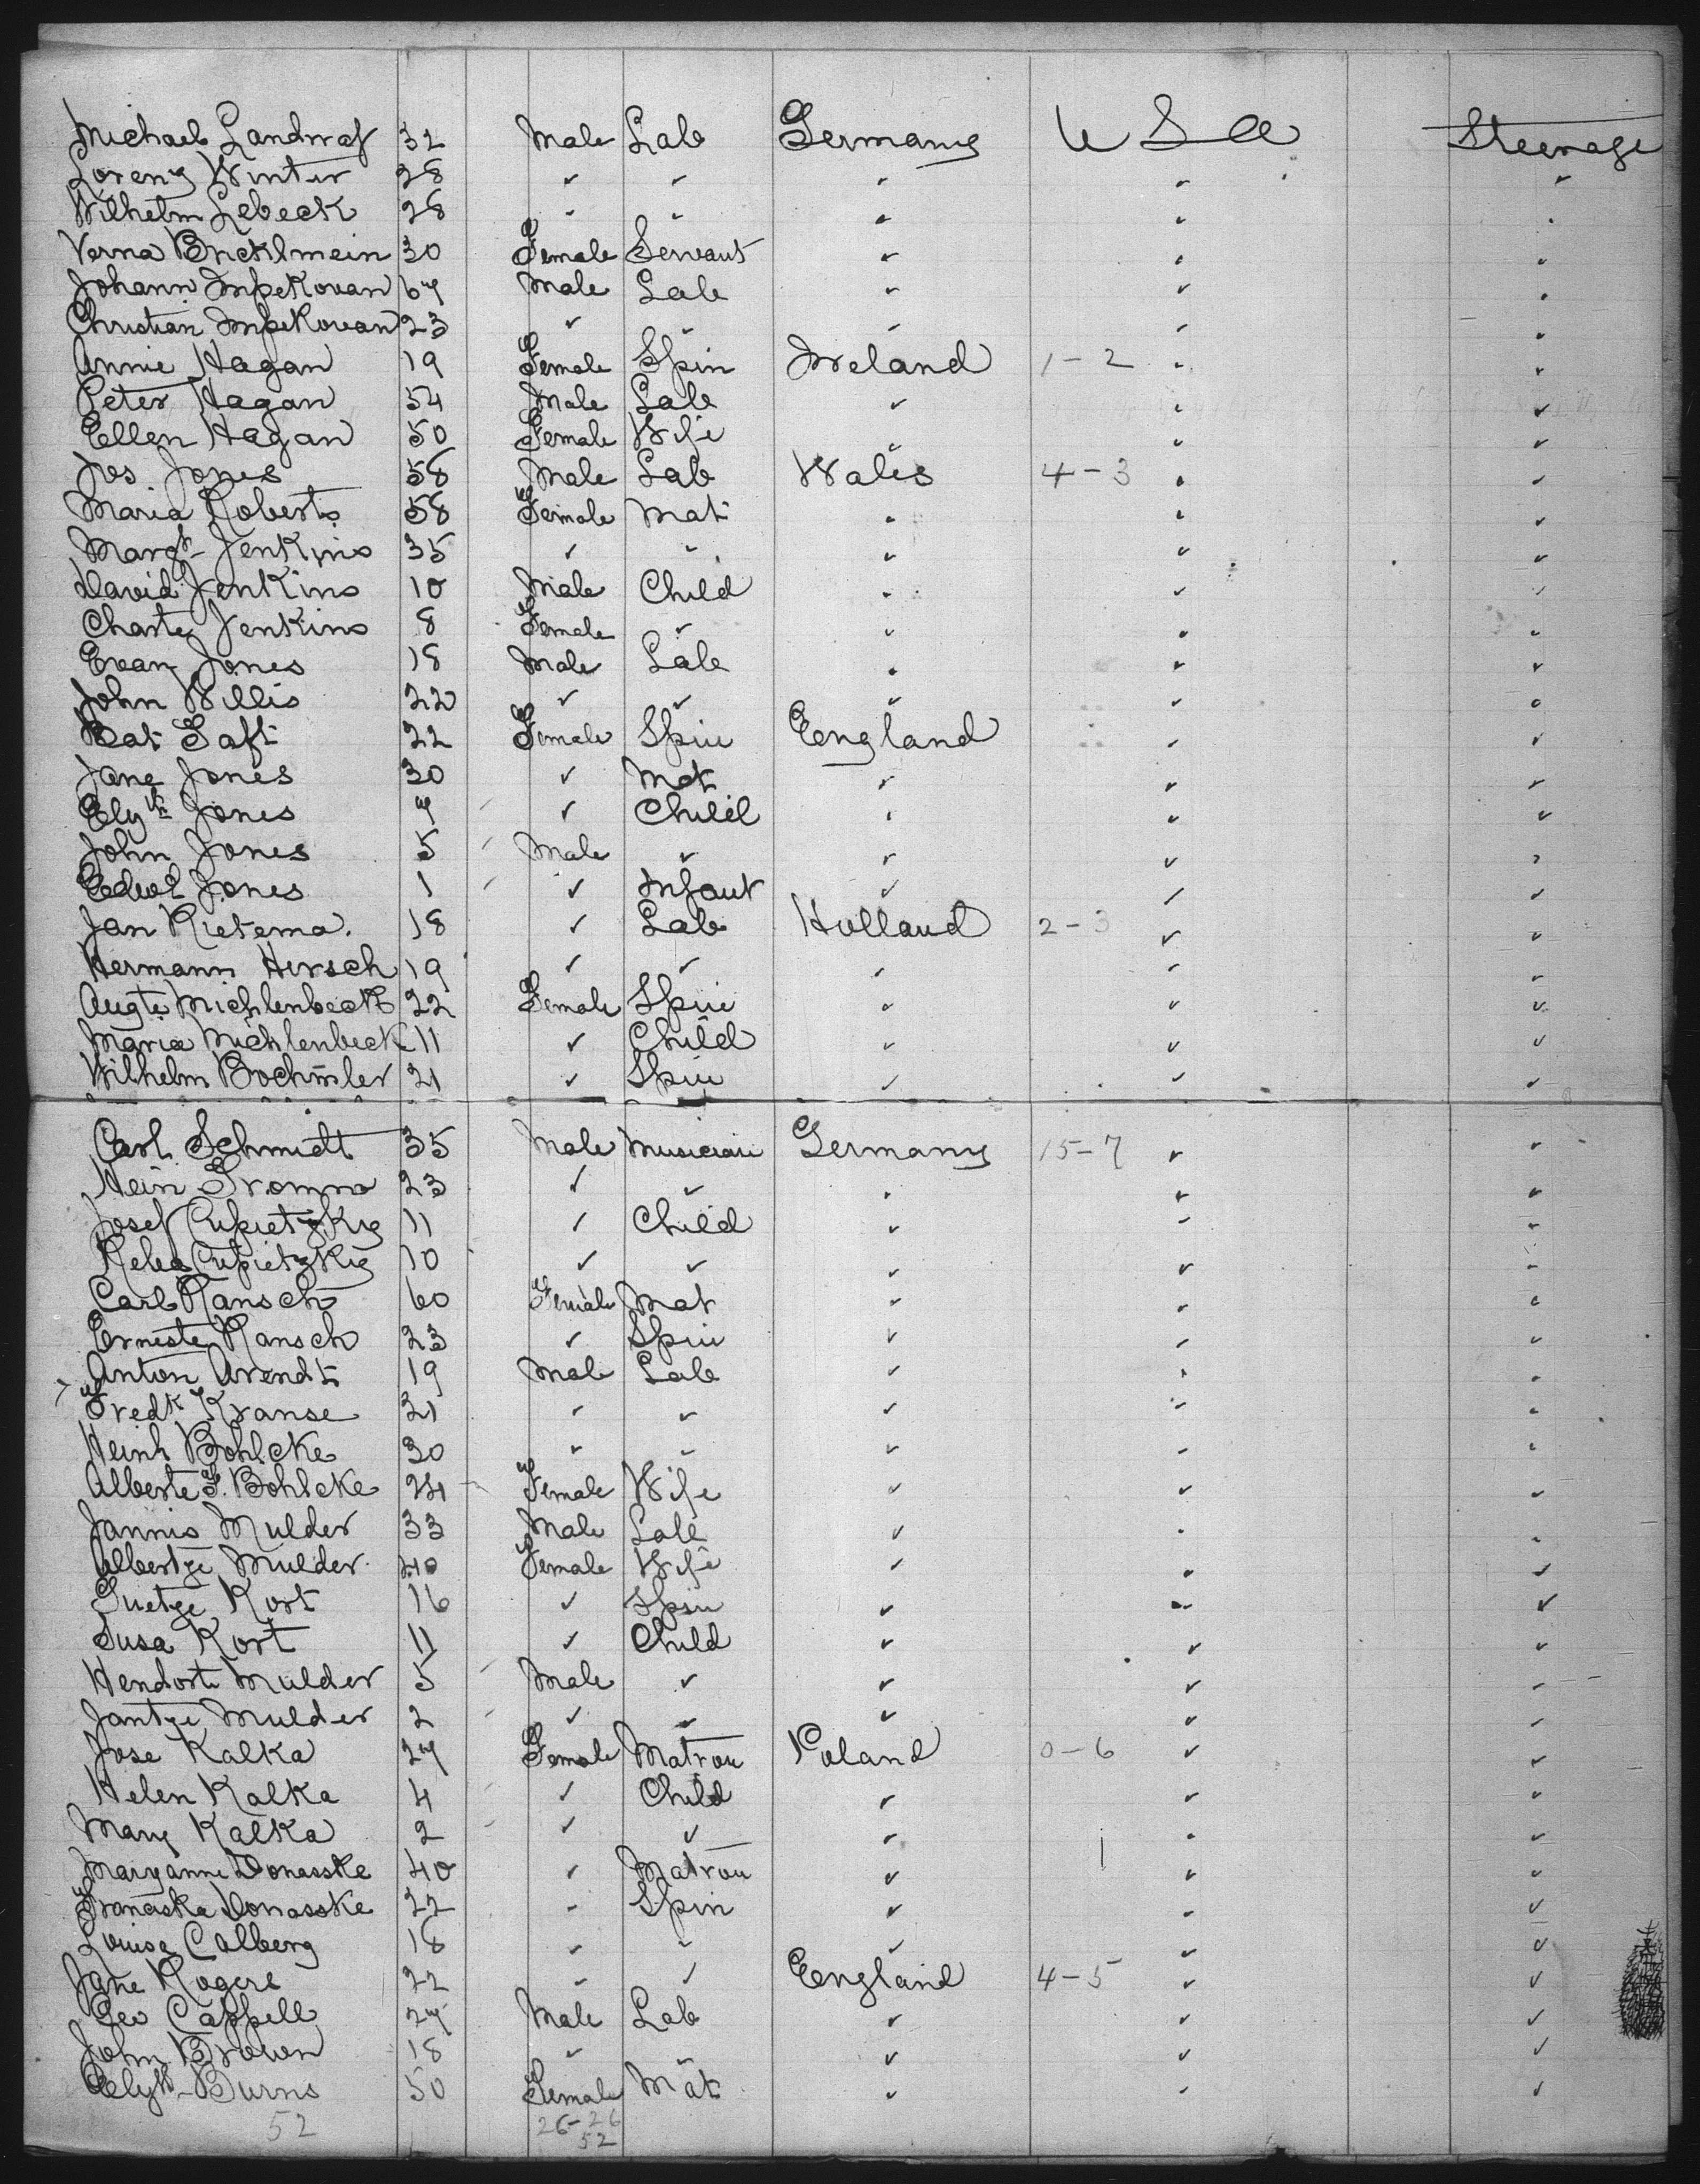 Michael Landwaf 32 Male Lab Germany U S A Steerage
Lorenz Winter 28 ✓ ✓ ✓ ✓ ✓
Wilhelm Lebeck 28 ✓ ✓ ✓ ✓ ✓
Verna 30 Female Servant ✓ ✓ ✓
Johann Impekovan 67 Male Lab ✓ ✓ ✓
Christian Impekovan 23 ✓ ✓ ✓ ✓ ✓
Annie Hagan 19 Female Spin Ireland 1-2 ✓ ✓
Peter Hagan 54 Male Lab ✓ ✓ ✓
Ellen Hagan 50 Female Wife ✓ ✓ ✓
Jos Jones 58 Male Lab Wales 4-3 ✓ ✓
Maria Roberts 58 Female Mat ✓ ✓ ✓
Margt Jenkins 35 ✓ ✓ ✓ ✓ ✓
David Jenkins 10 Male Child ✓ ✓ ✓
Jenkins 8 Female ✓ ✓ ✓ ✓
Evan Jones 18 Male Lab ✓ ✓ ✓
John Willis 22 ✓ ✓ ✓ ✓ ✓
22 Female Spin England ✓ ✓
Jane Jones 30 ✓ Mat ✓ ✓ ✓
Elyth Jones 7 ✓ Child ✓ ✓ ✓
John Jones 5 Male ✓ ✓ ✓ ✓
Edwd Jones 1 ✓ Infant ✓ ✓ ✓
Jan Rietema. 18 ✓ Lab Holland 2-3 ✓ ✓
Hermann Hirsch 19 ✓ ✓ ✓ ✓ ✓
Augte Michlenbeck 22 Female Spin ✓ ✓ ✓
Maria Michlenbeck 11 ✓ Child ✓ ✓ ✓
Wilhelm Bochmler 21 ✓ Spin ✓ ✓ ✓
Carl Schmidt 35 Male Musician Germany 15-7 ✓ ✓
Hein 23 ✓ ✓ ✓ ✓ ✓
Josef Cupietzkig 11 ✓ Child ✓ ✓ ✓
Cupietzkig 10 ✓ ✓ ✓ ✓ ✓
Carl Ransch 60 Female Mat ✓ ✓ ✓
Erneste Ransch 23 ✓ Spin ✓ ✓ ✓
Anton Arendt 19 Male Lab ✓ ✓ ✓
Fredk Kranse 21 ✓ ✓ ✓ ✓ ✓
Heinh Bohlcke 30 ✓ ✓ ✓ ✓ ✓
Alberte F. Bohlcke 24 Female Wife ✓ ✓ ✓
Jannis Mulder 33 Male Lab ✓ ✓ ✓
Albertje Mulder 40 Female Wife ✓ ✓ ✓
Guetje Kort 16 ✓ Spin ✓ ✓ ✓
Susa Kort 11 ✓ Child ✓ ✓ ✓
Hendort Mulder 5 Male ✓ ✓ ✓ ✓
Jantje Mulder 2 ✓ ✓ ✓ ✓ ✓
Jose Kalka 27 Female Matron Poland 0-6 ✓ ✓
Helen Kalka 4 ✓ Child ✓ ✓ ✓
Mary Kalka 2 ✓ ✓ ✓ ✓ ✓
Maryanne Donasske 40 ✓ Matron ✓ ✓ ✓
Franciska Donasske 22 ✓ Spin ✓ ✓ ✓
Louisa Calberg 18 ✓ ✓ ✓ ✓ ✓
Jane Rogers 22 ✓ ✓ England 4-5 ✓ ✓
Geo Cappell 27 Male Lab ✓ ✓ ✓
John Brown 18 ✓ ✓ ✓ ✓ ✓
Elyth Burns 50 Female Mat ✓ ✓ ✓
52 26-26
52